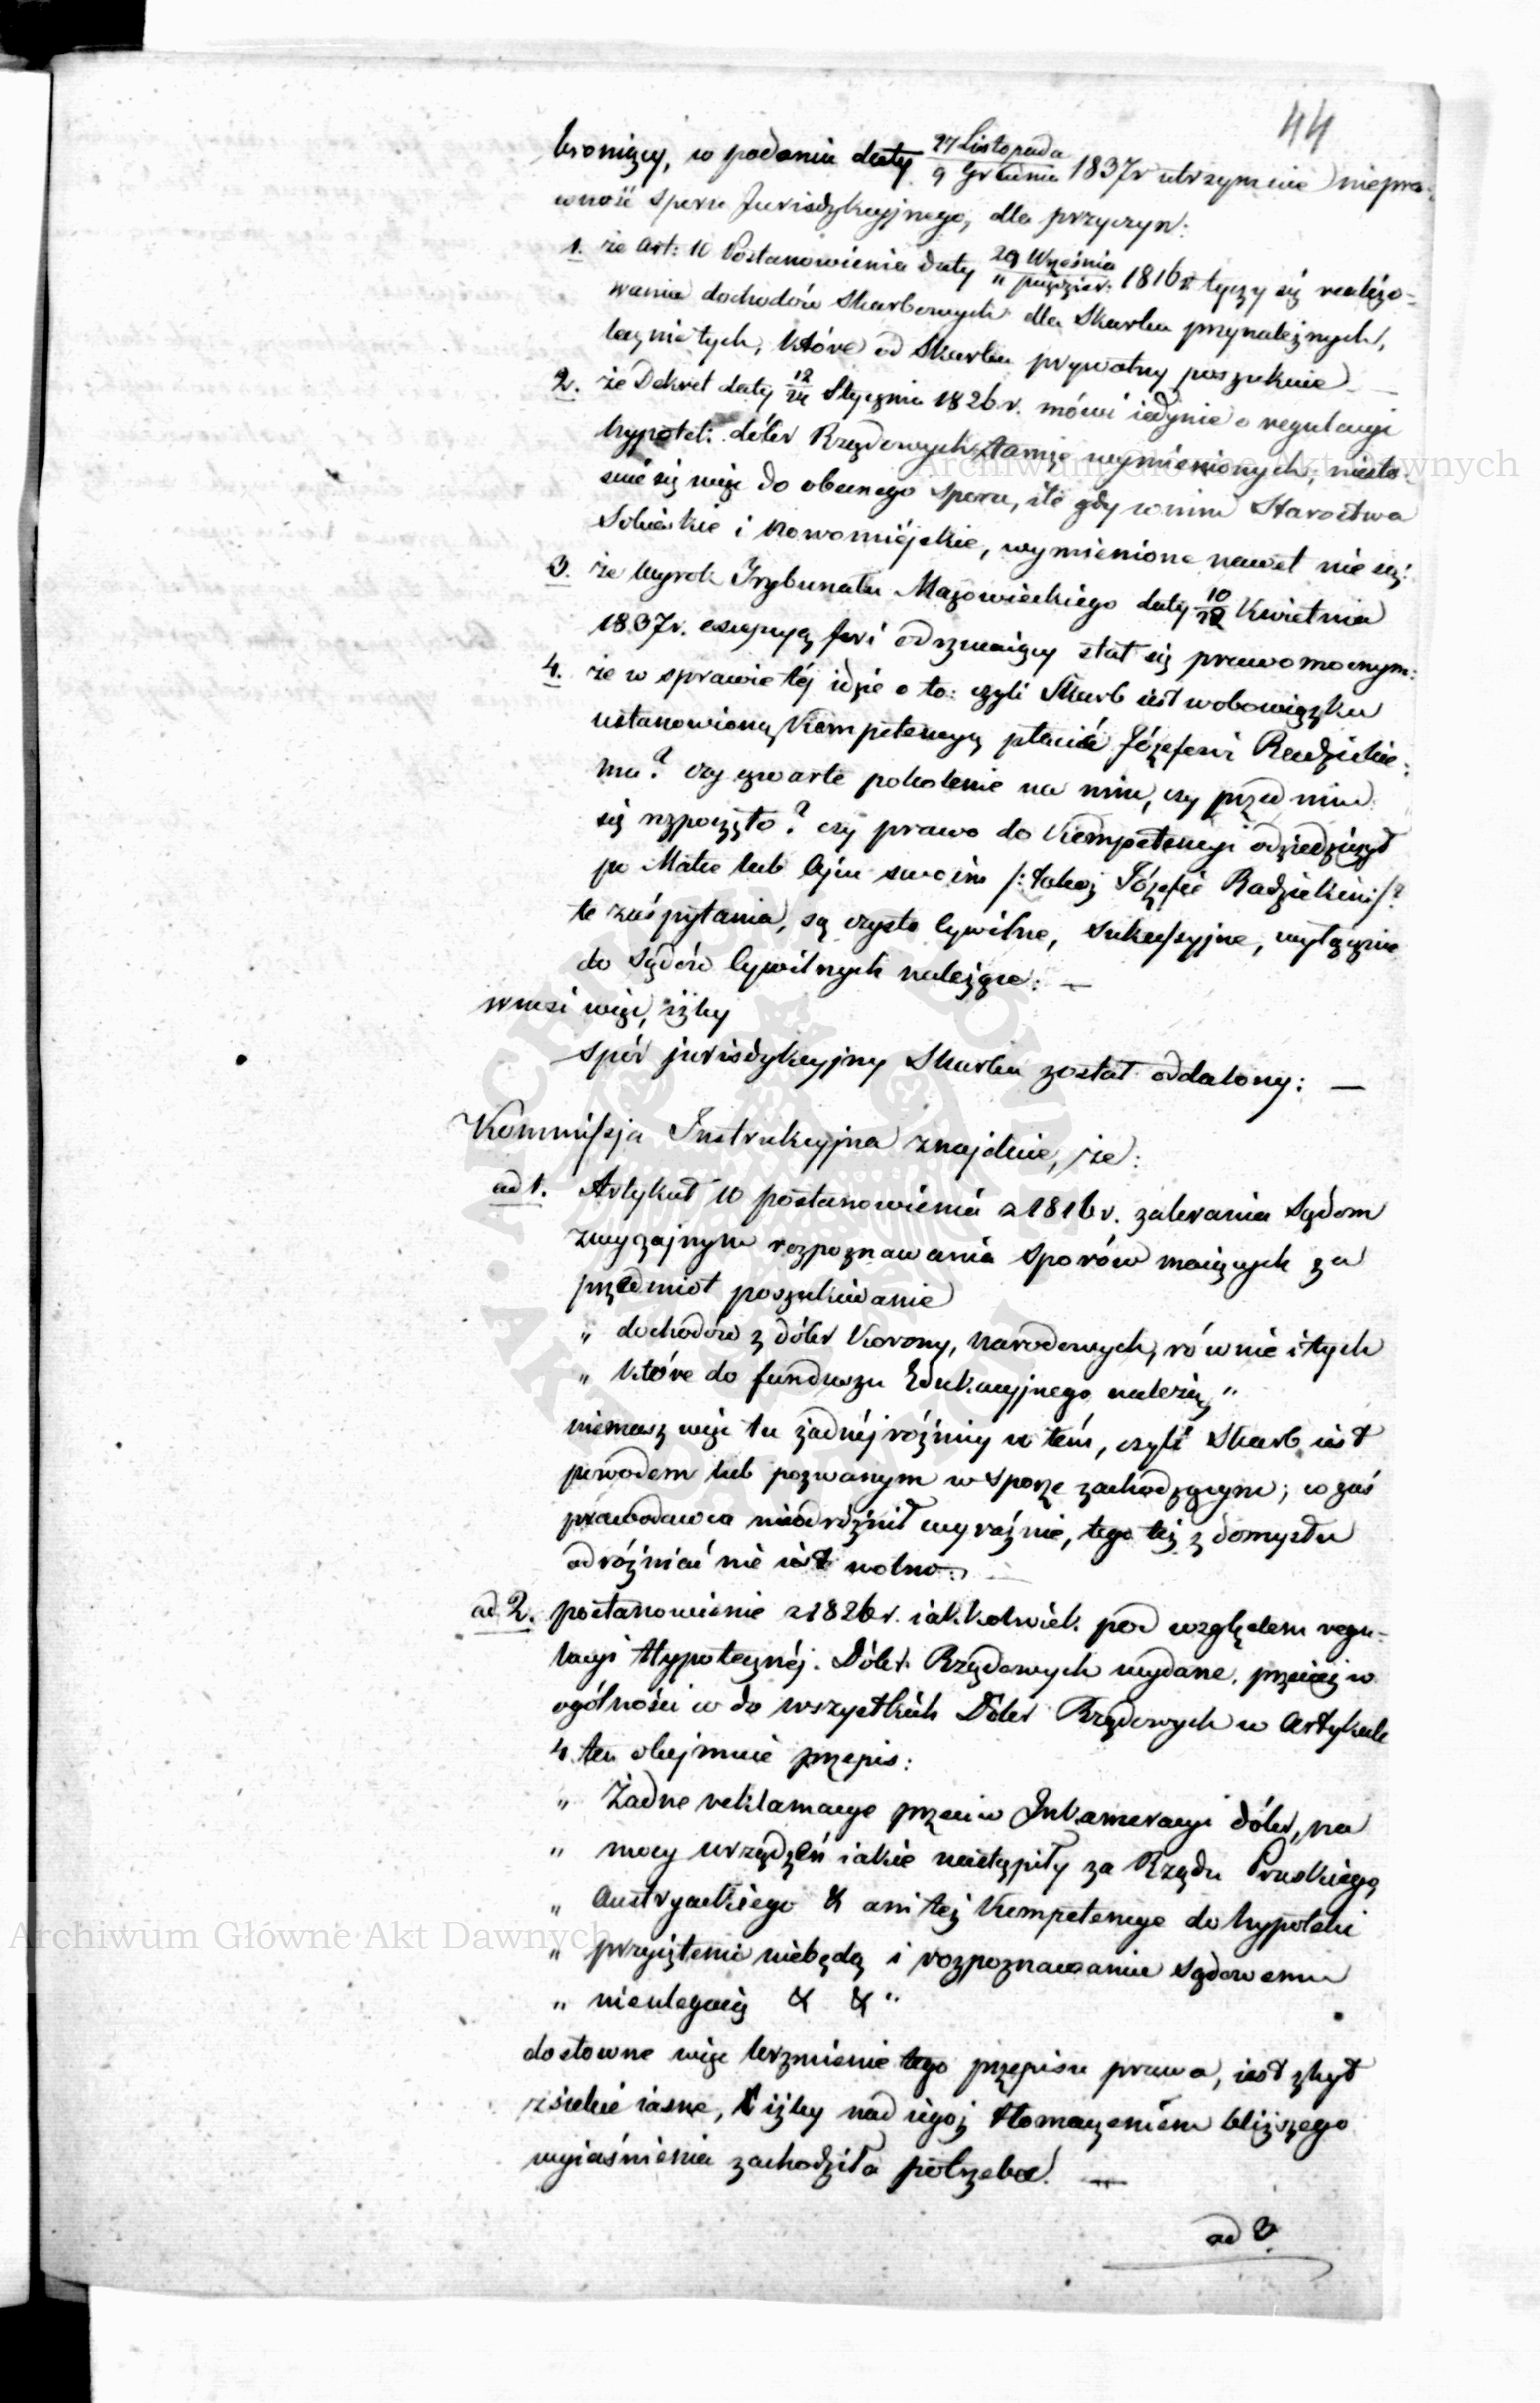 44
broniący, w podaniu daty 27 Listopada / 9 Grudnia 1837r utrzymuie niepra-
wność Sporu Jurisdykcyjnego, dla przyczyn:
1. że Art: 10 Postanowienia daty 29 Września / 11 Paździer: 1816 r tyczy się realizo-
wania dochodów Skarbowych dla Skarbu przynależnych,
lecz nie tych, które od Skarbu prywatny poszukuie —
2. że Dekret daty 12/24 Stycznia 1826 r. mówi iedynie o regulacyi
hypotek: dóbr Rządowych tamże wymienionych, niesto-
suie się więc do obecnego Sporu, ile gdy w nim Starostwa
i Nowomiéjskie, wymienione nawet nie są:
3. że Wyrok Trybunału Mazowieckiego daty 10/22 Kwietnia
1837r. excepcyą fori odrzucaiący stał się prawomocnym:
4. że w sprawie téj idzie o to: czyli Skarb iest w obowiązku
ustanowioną Kompetencyą płacić Józefowi Radzickie-
mu? czy czwarte pokolenie na nim, czy przed nim
się rozpoczęło? czy prawo do Kompetencyi odziedziczył
po Matce lub Ojcu swoim /: także Józefie Radzickim :/?
te zaś pytania, są czysto Cywilne, Sukcessyjne, wyłącznie
do Sądów Cywilnych należące: —
wnosi więc, iżby
Spór jurisdykcyjny Skarbu został oddalony: —
Kommissja Instrukcyjna znajduie, że:
ad 1. Artykuł 10 postanowienia z 1816 r. zabrania Sądom
zwyczajnym rozpoznawania Sporów maiących za
przedmiot poszukiwanie
„ dochodów z dóbr Korony, Narodowych, równie i tych
„ które do funduszu Edukacyjnego należą „
niemasz więc tu żadnéj różnicy w tém, czyli Skarb iest
powodem lub pozwanym w Sporze zachodzącym; co zaś
prawodawca nieodróżnił wyraźnie, tego też z domysłu
odróżniać nie iest wolno. —
ad 2. postanowienie z 1826 r. iakkolwiek pod względem regu-
lacyi Hypotecznéj Dóbr Rządowych wydane, przecież w
ogólności co do wszystkich Dóbr Rządowych w Artykule
4 ten obejmuie przepis:
„ Żadne reklamacye przeciw Inkameracyi dóbr, na
„ mocy urządzeń iakie nastąpiły za Rządu Pruskiego
„ Austryackiego & ani też Kompetencye do hypoteki
„ przyięteni niebędą i rozpoznawaniu sądowemu
„ nieulegaią & & „
dosłowne więc brzmienie tego przepisu prawa, iest zbyt
z siebie iasne, iżby nad iegoż tłomaczeniem bliższego
wyiaśnienia zachodziła potrzeba. —
ad 3.
Archiwum Główne Akt Dawnych
Archiwum Główne Akt Dawnych